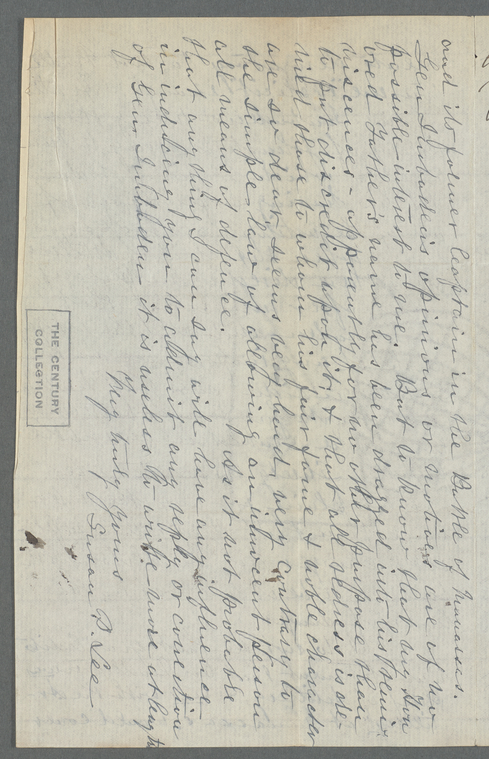 and its former Captain in the Battle of Manassas.
Gen. Imboden's opinions or motives are of no
possible interest to me. But to know that my hon
ored Father's name has been dragged into his remi-
niscences - apparently for no other purpose than
to put discredit upon it, & that all redress is de-
nied those to whom his fair fame & noble character
are so dear, seems very hard, very contrary to
the simple law of allowing an innocent person
all means of defence. As it is not probable
that anything I can say will have any influence
in inducing you to admit any reply or correction
of Gen. Imboden it is useless to write more at length
Very truly yours
Susan P. Lee
THE CENTURY
COLLECTION